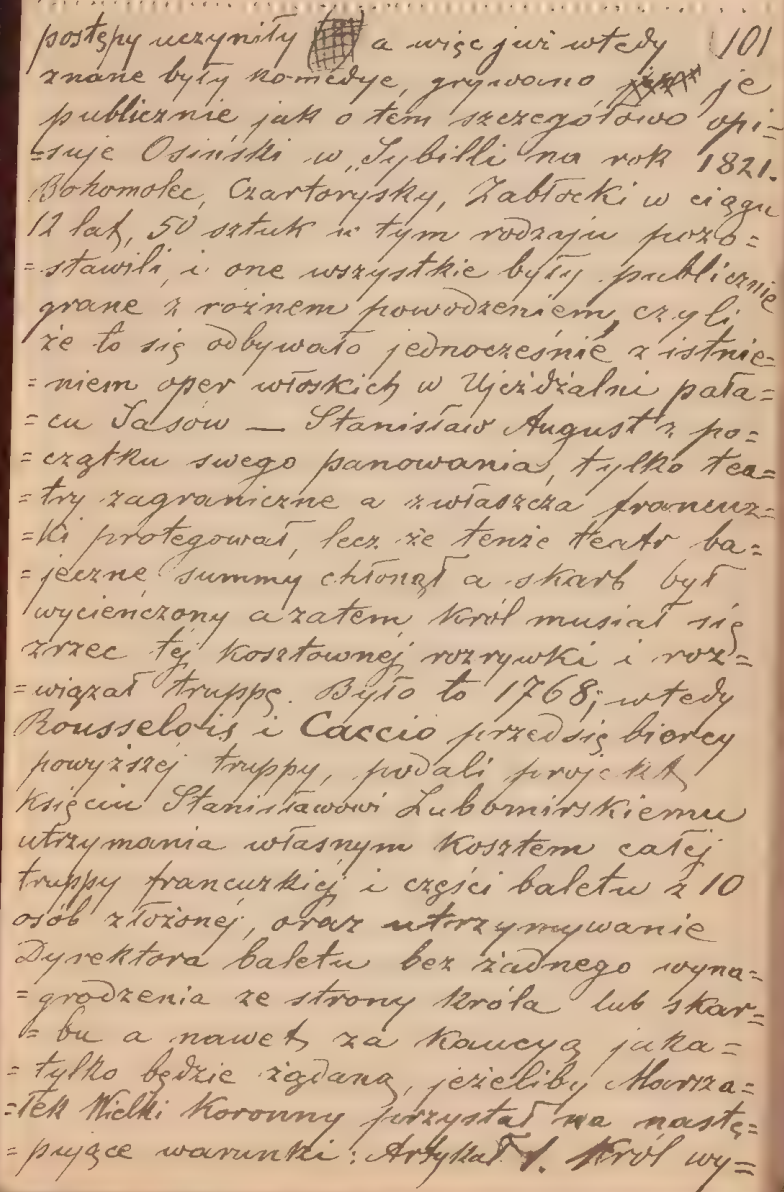 postępy uczyniły a więc już wtedy 101
znane były komedye, grywano je
publicznie jak o tem szczegółowo opi=
=suje Osiński w „Sybilli na rok 1821.
Bohomolec, Czartorysky, Zabłocki w ciągu
12 lat, 50 sztuk w tym rodzaju pozo=
=stawili, i one wszystkie były publicznie
grane z rożnem powodzeniem, czyli
że to się odbywało jednocześnie z istnie=
=niem oper włoskich w Ujeżdżalni pała=
=cu Sasów — Stanisław August z po=
=czątku swego panowania, tylko tea=
=try zagraniczne a zwłaszcza francuz=
=ki protegował, lecz że tenże teatr ba=
=jeczne summy chłonął a skarb był
wycieńczony a zatem Król musiał się
zrzec tej kosztownej rozrywki i roz=
=wiązał truppę. Było to 1768; wtedy
Rousselois i Caccio przedsiębiorcy
powyższej truppy, podali projekt
Księciu Stanisławowi Lubomirskiemu
utrzymania własnym kosztem całej
truppy francuzkiej i części baletu z 10
osób złożonej, oraz utrzymywanie
Dyrektora baletu bez żadnego wyna=
=grodzenia ze strony króla lub skar=
=bu a nawet za kaucyą jaka=
=tylko będzie żądaną, jeżeliby Marsza=
=łek Wielki Koronny przystał na nastę=
=pujące warunki: Artykał 1. Król wy=